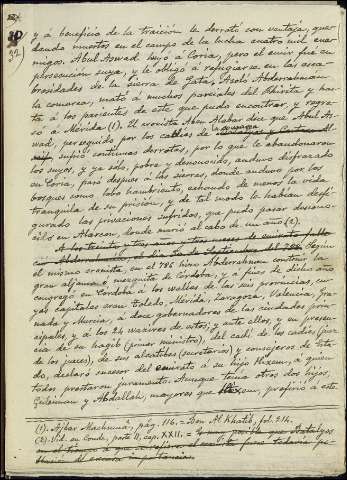 y á beneficio de la traición le derrotó con ventaja, que-
dando muertos en el campo de la lucha cuatro mil ene-
migos. Abul Aswad huyó á Coria, pero el emir fué en
persecución suya, y le obligó á refugiarse en las
brosidades de la sierra de Gata. Asoló Abderrahman
la comarca, mató á muchos parciales del fihrista y has-
ta á los parientes de este que pudo encontrar, y regre-
só á Mérida (1). El cronista Aben Alabar dice que Abul As-
wad, perseguido por los
sufrió continuas derrotas, por lo que le abandonaron
los suyos, y ya solo, pobre y desconocido, anduvo disfrazado
en Coria, pasó despues á las sierras, donde anduvo por los
bosques como lobo hambriento, echando de menos la vida
tranquila de su prision, y de tal modo le habian desfi-
gurado las privaciones sufridas, que pudo pasar descono-
cido en Alarcon, donde murió al cabo de un año (2).
A los treinta y tres años y tres meses de emirato
Abderrahman, el dia de del 788. Segun
el mismo cronista, en el 786 hizo Abderrahman construir la
gran aljama ó mezquita de Córdoba, y á fines de dicho año
congregó en Córdoba á los walíes de las seis provincias, cu-
yas capitales eran Toledo, Mérida, Zaragoza, Valencia, Gra-
nada y Murcia, á doce gobernadores de las ciudades prin-
cipales, y á los 24 waxires de estos; y ante ellos y en presen-
cia de su hagib (primer ministro), del cadí de los cadíes (juez
de los jueces), de sus alcatibes (secretarios) y consejeros de Esta-
do, declaró sucesor del emirato á su hijo Hixem, á quien
todos prestaron juramento. Aunque tenia otros dos hijos,
Suleiman y Abdallah, mayores que Hixem, prefirió á este
(1). Ajbar Machmuâ, pág. 116. = Ben Al Khatib, fol. 214.
(2). Vid. en Conde, parte II, cap. XXII. = posible que Batalyos
en el tiempo á que se refiere el cronista fuese todavia